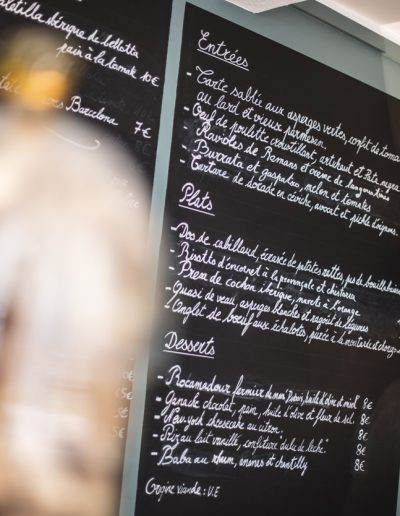 ibérique de bellotta
pain à la tomate 10€
Barcelona
7€
Entrées
- Tarte sablée aux asperges vertes, confit de tomate
au lard et vieux parmesan.
- Oeuf de poulette croustillant, artichaut et Pata negra
- Ravioles de Romans et crème de langoustines
- Burrata et gaspatxo, melon et tomates
- Tartare de dorade en céviche, avocat et pickles d'oignons.
Plats
- Dos de cabillaud, écrasée de patates rattes, jus de bouillabaisse
- Risotto d'encornet à la provençale et chistorra
- Presa de cochon ibérique, navets à l'orange
- Quasi de veau, asperges blanches et ragoût de légumes
- Onglet de boeuf aux échalotes, purée à la moutarde et
Desserts
- Rocamadour fermier du mas huile d'olive et miel 8€
- Ganache chocolat, pain, huile d'olive et fleur de sel 8€
- New-york cheesecake au citron 8€
- Riz au lait vanille, confiture "dulce de leche" 8€
- Baba au rhum, ananas et chantilly 8€
viande : U.E